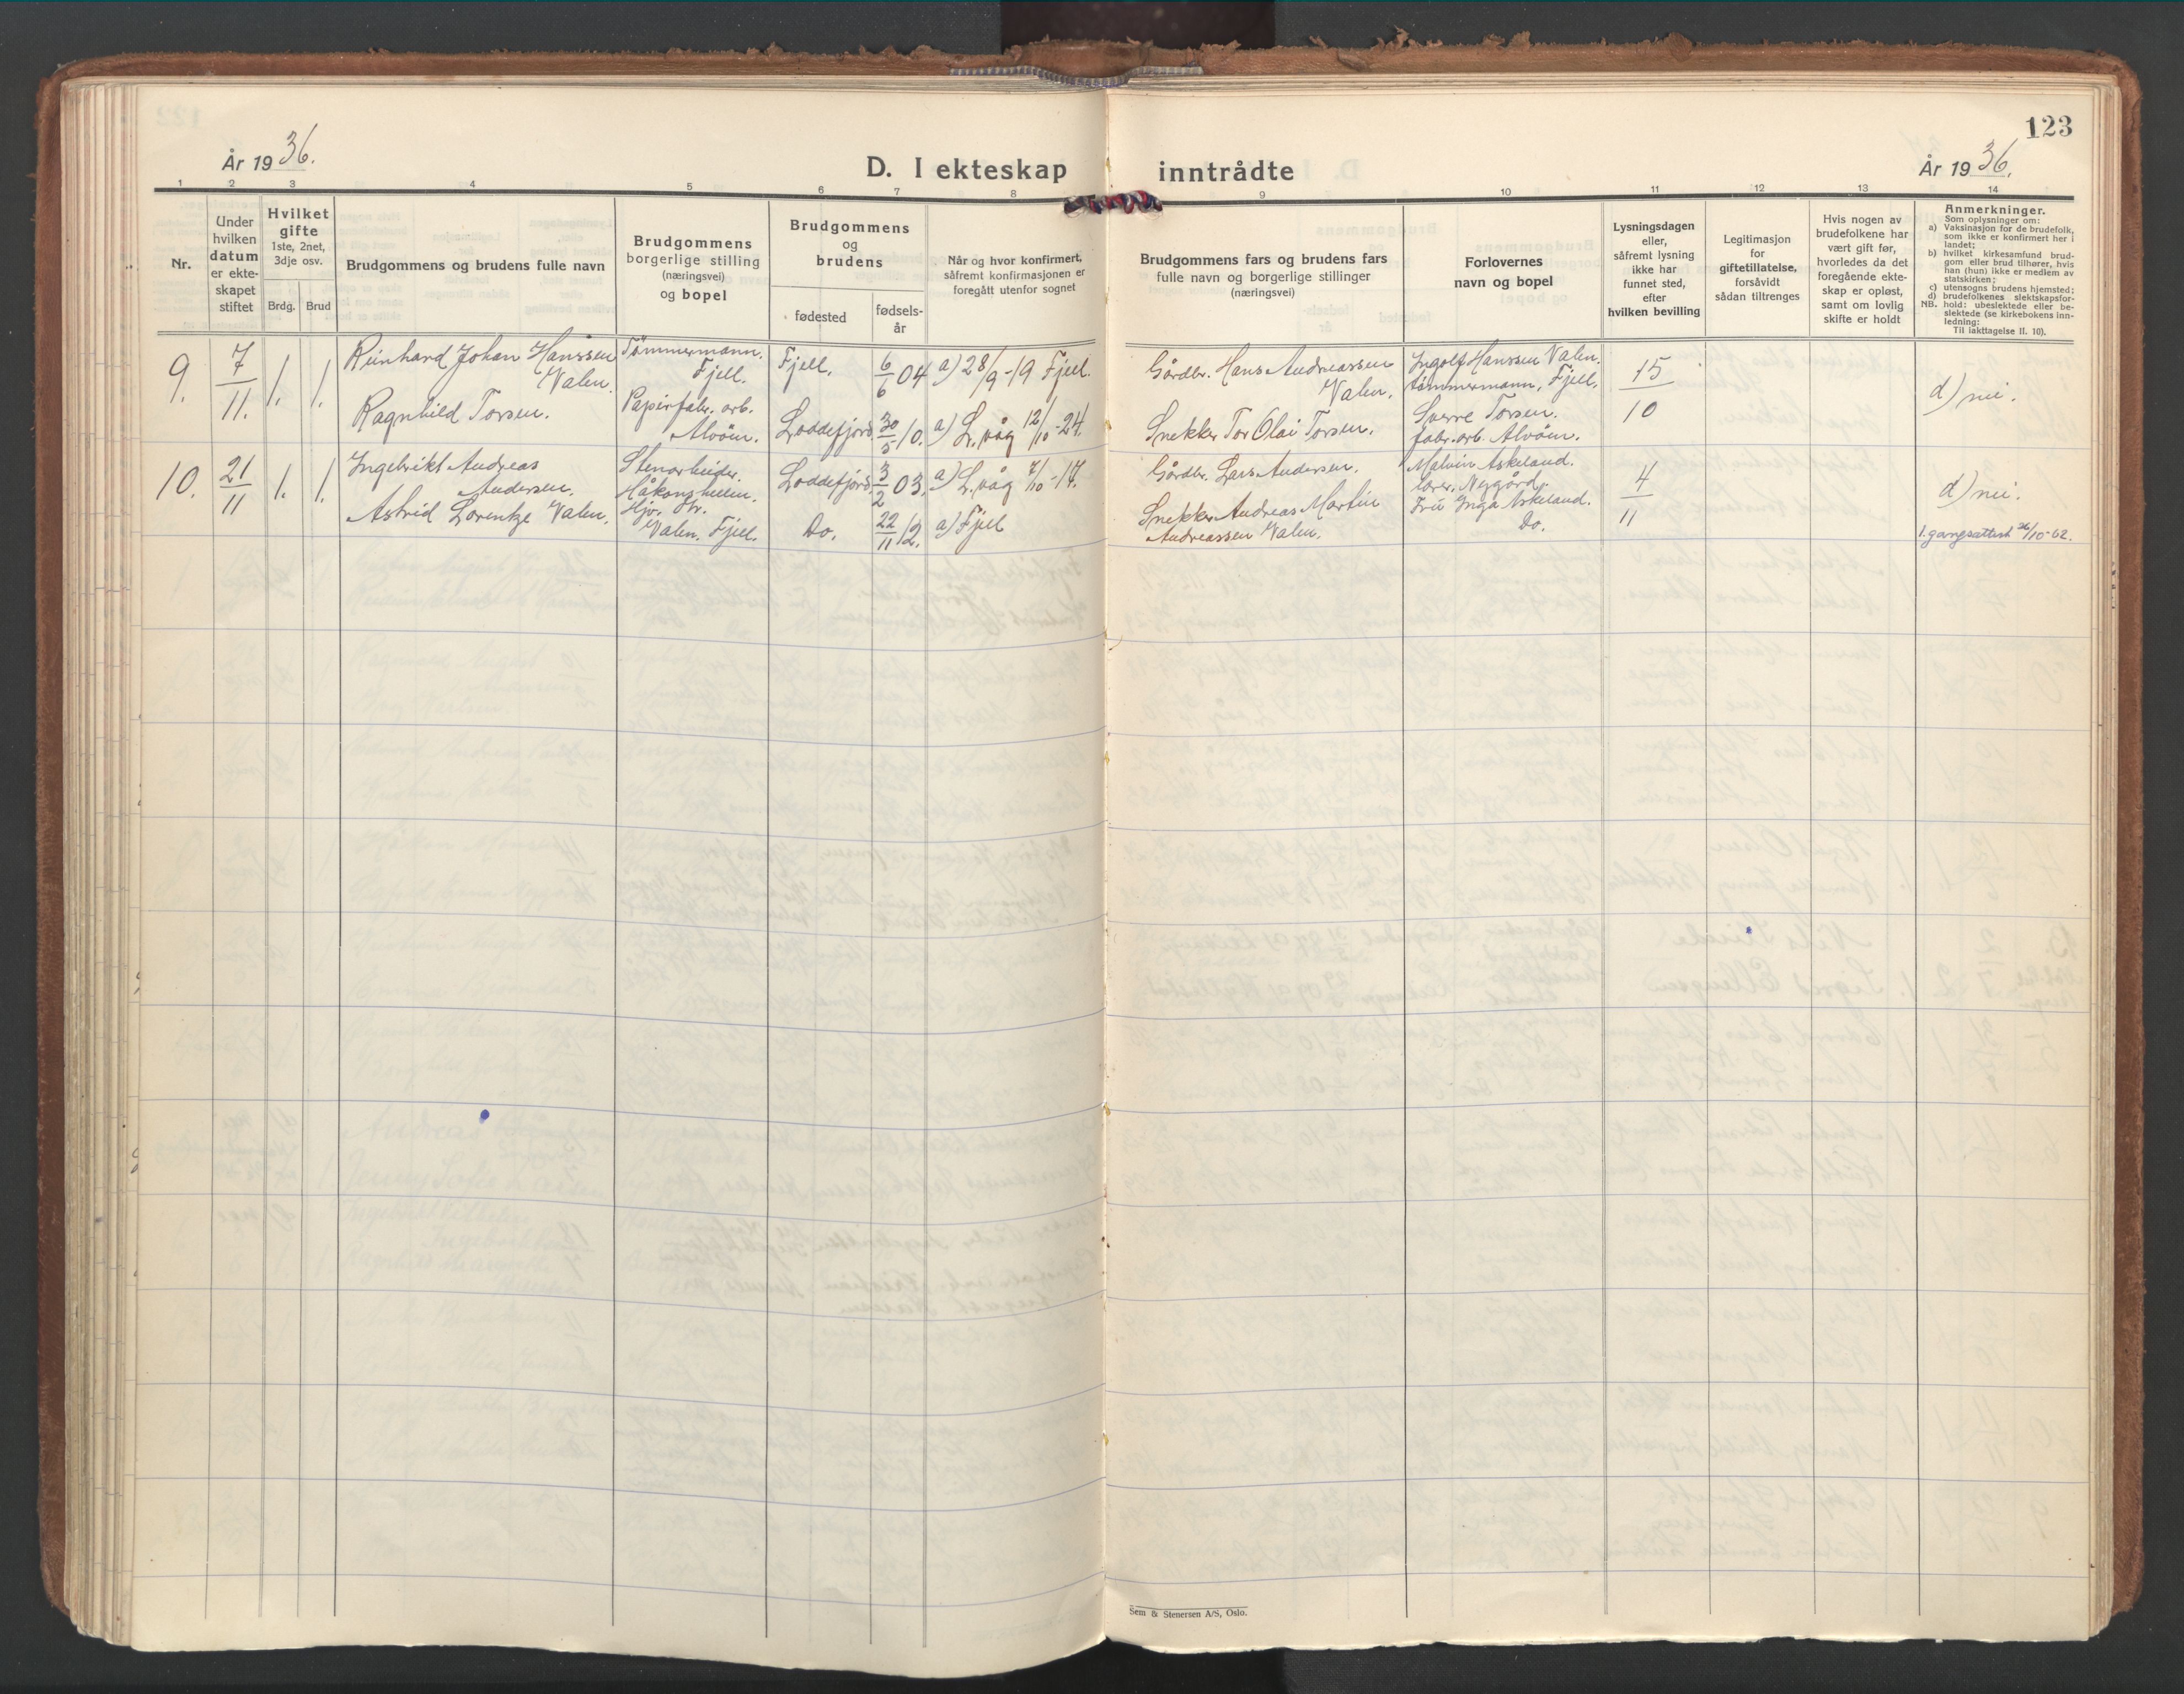 123
År 1936.
D. I ekteskap inntrådte
År 1936.
1 2 3 4 5 6 7 8 9 10 11 12 13 14
Nr.
Under
hvilken
datum
er ekte-
skapet
stiftet
Hvilket
gifte
1ste, 2net,
3dje osv.
Brdg. Brud
Brudgommens og brudens fulle navn
Brudgommens
borgerlige stilling
(næringsvei)
og bopel
Brudgommens
og
brudens
fødested
fødsels-
år
Når og hvor konfirmert,
såfremt konfirmasjonen er
foregått utenfor sognet
Brudgommens fars og brudens fars
fulle navn og borgerlige stillinger
(næringsvei)
Forlovernes
navn og bopel
Lysningsdagen
eller,
såfremt lysning
ikke har
funnet sted,
efter
hvilken bevilling
Legitimasjon
for
giftetillatelse,
forsåvidt
sådan tiltrenges
Hvis nogen av
brudefolkene har
vært gift før,
hvorledes da det
foregående ekte-
skap er opløst,
samt om lovlig
skifte er holdt
Anmerkninger.
Som oplysninger om:
a) Vaksinasjon for de brudefolk,
som ikke er konfirmert her i
landet;
b) hvilket kirkesamfund brud-
gom eller brud tilhører, hvis
han (hun) ikke er medlem av
statskirken;
c) utensogns brudens hjemsted;
d) brudefolkenes slektskapsfor-
NB. hold: ubeslektede eller be-
slektede (se kirkebokens inn-
ledning:
Til iakttagelse II. 10).
9. 7/11. 1. 1.
Reinhard Johan Hanssen
Valen.
Tømmermann.
Fjell.
Fjell. 6/6 04 a) 28/9-19 Fjell.
Gårdbr. Hans Andreassen
Valen.
Ingolf Hanssen Valen.
tømmermann, Fjell.
15/10
d) nei.
Ragnhild Torsen.
Papirfabr. arb.
Alvøen.
Loddefjord 30/5 10. a) L.våg 12/10-24.
Snekker Tor Olai Torsen.
Sverre Torsen.
fabr. arb. Alvøen.
10. 21/11 1. 1.
Ingebrikt Andreas
Andersen.
Stenarbeider.
Håkonshellen.
Loddefjord 3/2 03. a) L.våg 7/10-17.
Gårdbr. Lars Andersen.
Malvin Askeland.
lærer, Nygård.
4/11
d) nei.
Astrid Lorentze Valen.
Hjv. str.
Valen. Fjell.
Do. 22/11 12. a) Fjell
Snekker Andreas Martin
Andreassen Valen.
Fru Inga Askeland.
Do.
1.gangsattest 26/10-62.
Sem & Stenersen A/S, Oslo.